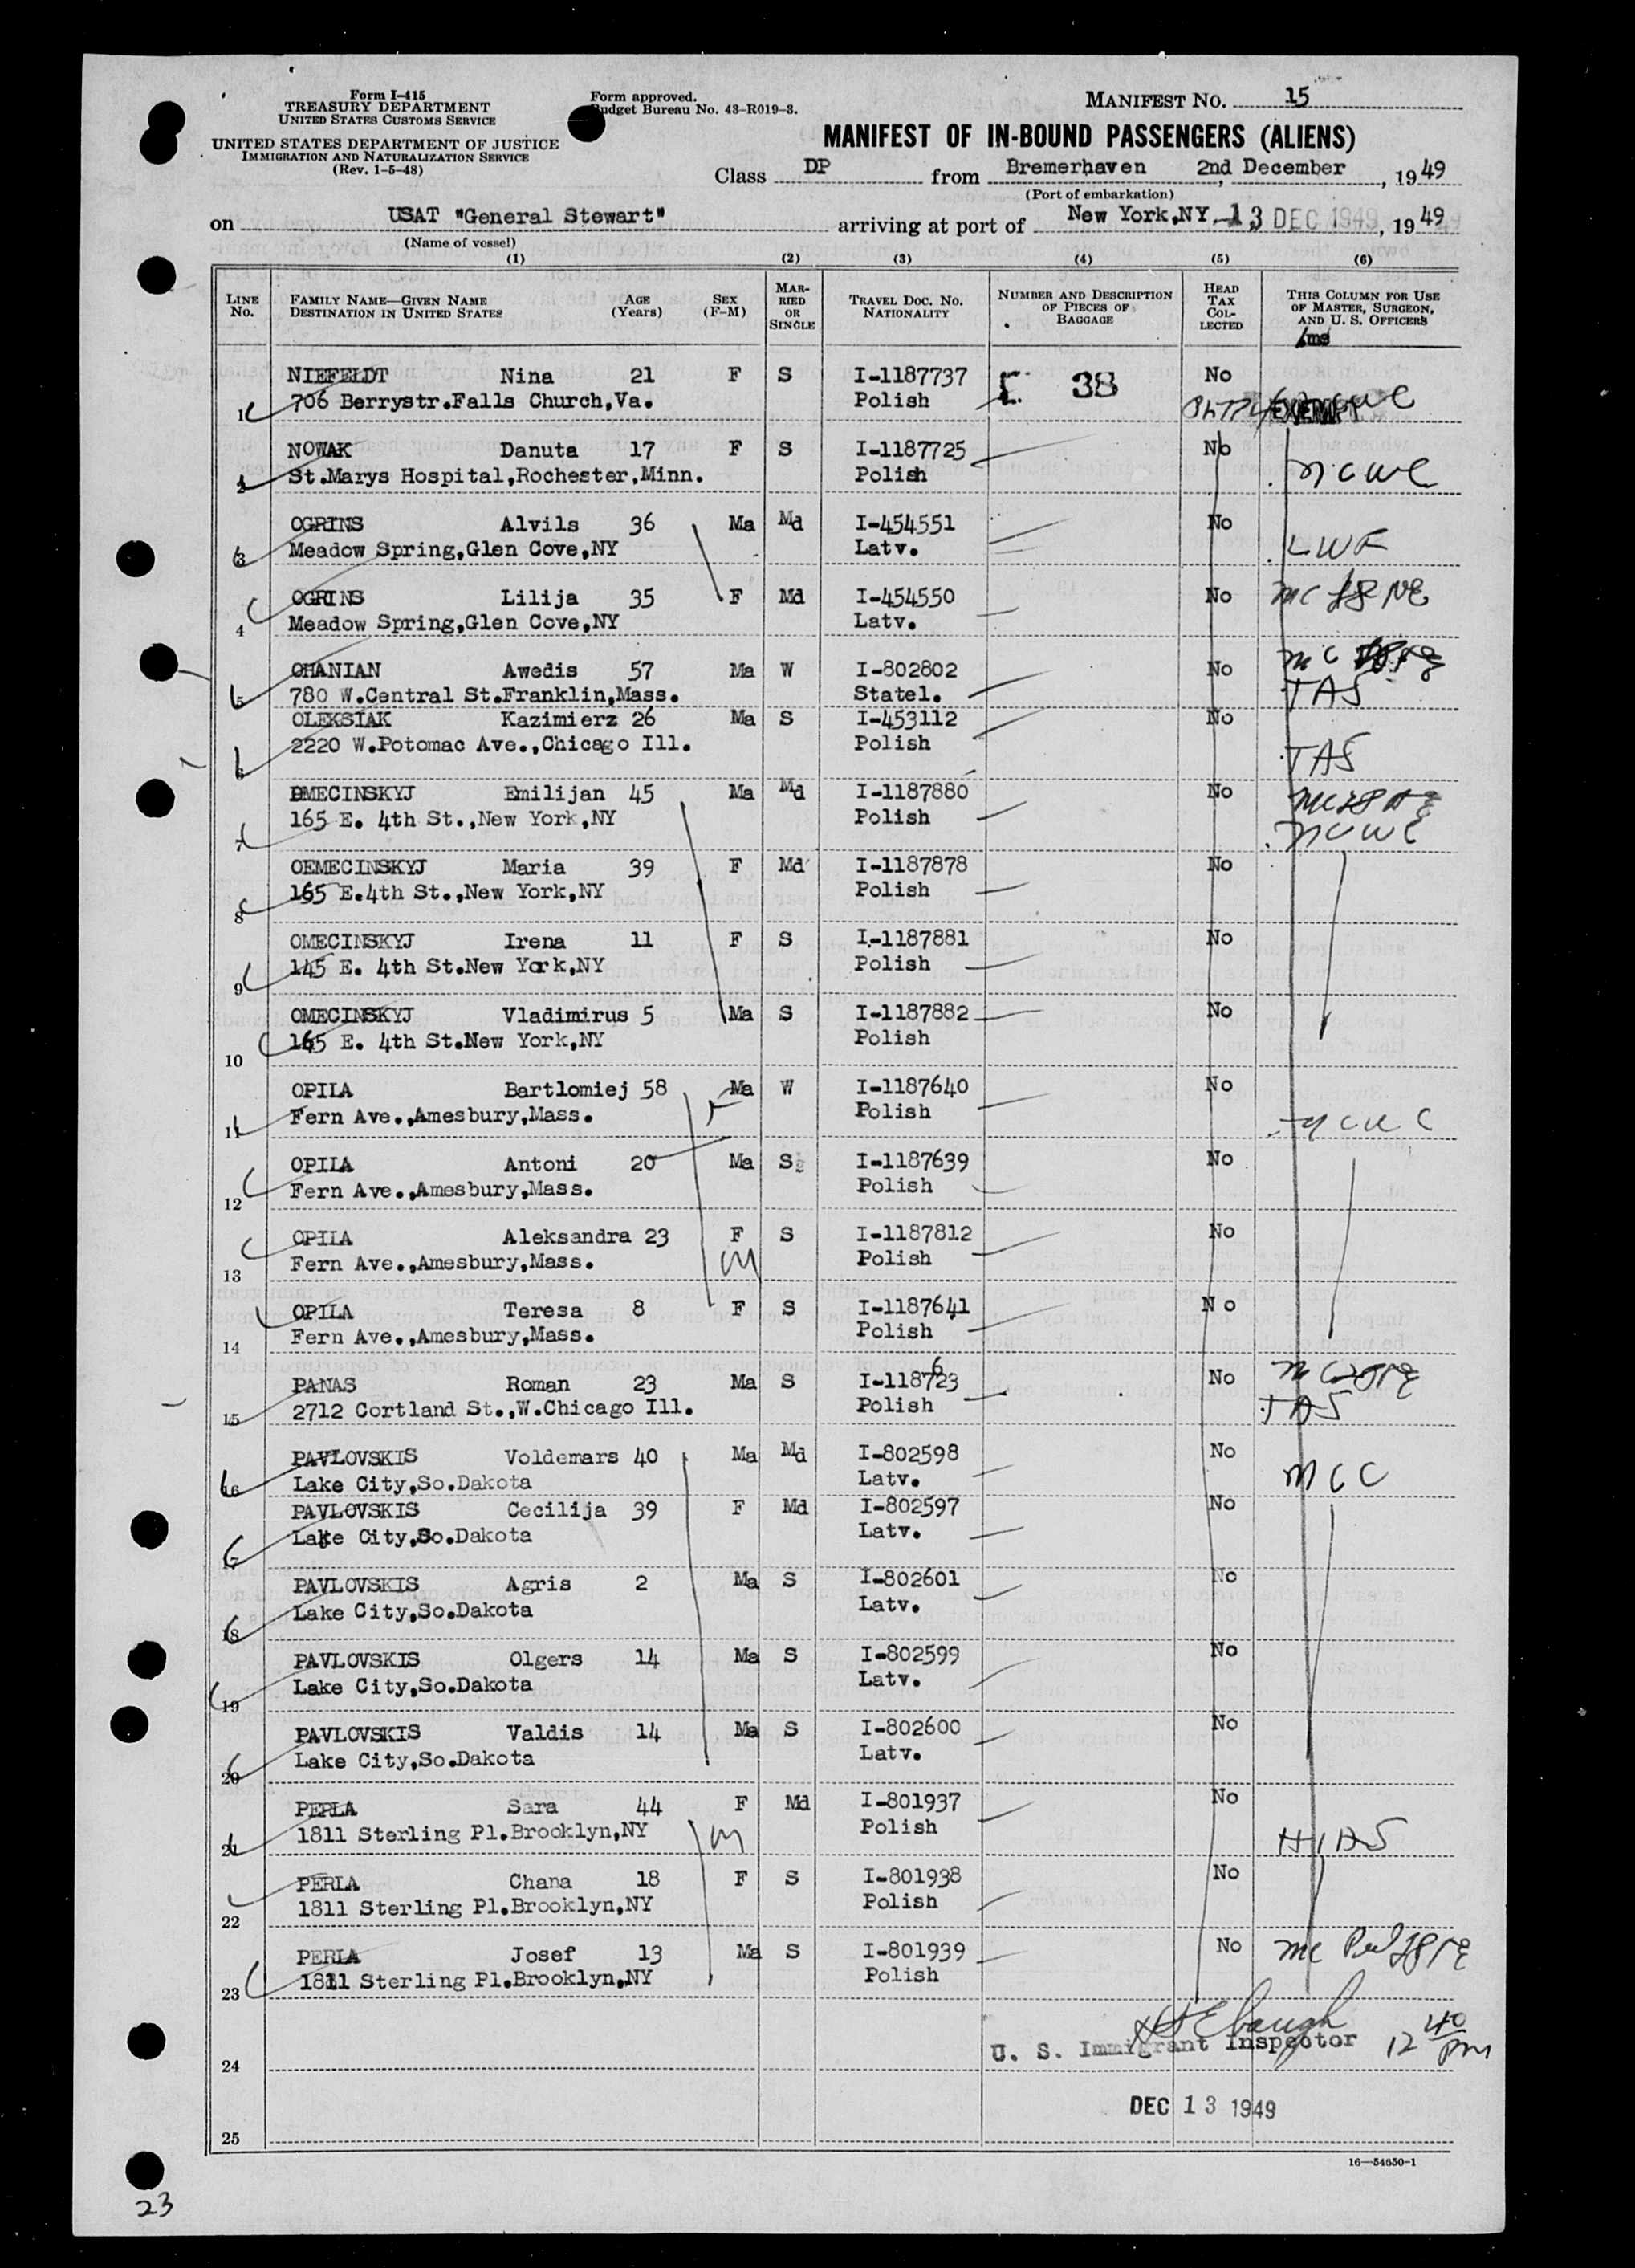 Form I-415
TREASURY DEPARTMENT
UNITED STATES CUSTOMS SERVICE
UNITED STATES DEPARTMENT OF JUSTICE
IMMIGRATION AND NATURALIZATION SERVICE
(Rev. 1-5-48)
Form approved.
Budget Bureau No. 43-R019-3.
MANIFEST NO. 15
MANIFEST OF IN-BOUND PASSENGERS (ALIENS)
Class DP from Bremerhaven 2nd December, 1949
(Port of embarkation)
on USAT "General Stewart" arriving at port of New York,NY. 13 DEC 1949, 1949
(Name of vessel)
(1) (2) (3) (4) (5) (6)
LINE No. FAMILY NAME—GIVEN NAME DESTINATION IN UNITED STATES AGE (Years) SEX (F-M) MARRIED OR SINGLE TRAVEL DOC. NO. NATIONALITY NUMBER AND DESCRIPTION OF PIECES OF BAGGAGE HEAD TAX COLLECTED THIS COLUMN FOR USE OF MASTER, SURGEON, AND U. S. OFFICERS
NIEFELDT Nina 21 F S I-1187737 38 No
1 706 Berrystr.Falls Church,Va. Polish EXEMPT
NOWAK Danuta 17 F S I-1187725 No
2 St.Marys Hospital,Rochester,Minn. Polish NCWC
OGRINS Alvils 36 Ma Md I-454551 No
3 Meadow Spring,Glen Cove,NY Latv. LWF
OGRINS Lilija 35 F Md I-454550 No
4 Meadow Spring,Glen Cove,NY Latv.
OHANIAN Awedis 57 Ma W I-802802 No
5 780 W.Central St.Franklin,Mass. Statel. TAS
OLEKSIAK Kazimierz 26 Ma S I-453112 No
6 2220 W.Potomac Ave.,Chicago Ill. Polish TAS
OMECINSKYJ Emilijan 45 Ma Md I-1187880 No
7 165 E. 4th St.,New York,NY Polish NCWC
OEMECINSKYJ Maria 39 F Md I-1187878 No
8 165 E.4th St.,New York,NY Polish
OMECINSKYJ Irena 11 F S I-1187881 No
9 145 E. 4th St.New York,NY Polish
OMECINSKYJ Vladimirus 5 Ma S I-1187882 No
10 165 E. 4th St.New York,NY Polish
OPILA Bartlomiej 58 Ma W I-1187640 No
11 Fern Ave.,Amesbury,Mass. Polish NCWC
OPILA Antoni 20 Ma S I-1187639 No
12 Fern Ave.,Amesbury,Mass. Polish
OPILA Aleksandra 23 F S I-1187812 No
13 Fern Ave.,Amesbury,Mass. Polish
OPILA Teresa 8 F S I-1187641 No
14 Fern Ave.,Amesbury,Mass. Polish
PANAS Roman 23 Ma S I-1187623 No
15 2712 Cortland St.,W.Chicago Ill. Polish TAS
PAVLOVSKIS Voldemars 40 Ma Md I-802598 No
16 Lake City,So.Dakota Latv. MCC
PAVLOVSKIS Cecilija 39 F Md I-802597 No
17 Lake City,So.Dakota Latv.
PAVLOVSKIS Agris 2 Ma S I-802601 No
18 Lake City,So.Dakota Latv.
PAVLOVSKIS Olgers 14 Ma S I-802599 No
19 Lake City,So.Dakota Latv.
PAVLOVSKIS Valdis 14 Ma S I-802600 No
20 Lake City,So.Dakota Latv.
PERLA Sara 44 F Md I-801937 No
21 1811 Sterling Pl.Brooklyn,NY Polish HIAS
PERLA Chana 18 F S I-801938 No
22 1811 Sterling Pl.Brooklyn,NY Polish
PERLA Josef 13 Ma S I-801939 No
23 1811 Sterling Pl.Brooklyn,NY Polish
U. S. Immigrant Inspector 12 40 PM
24
DEC 13 1949
25
16—54650-1
23